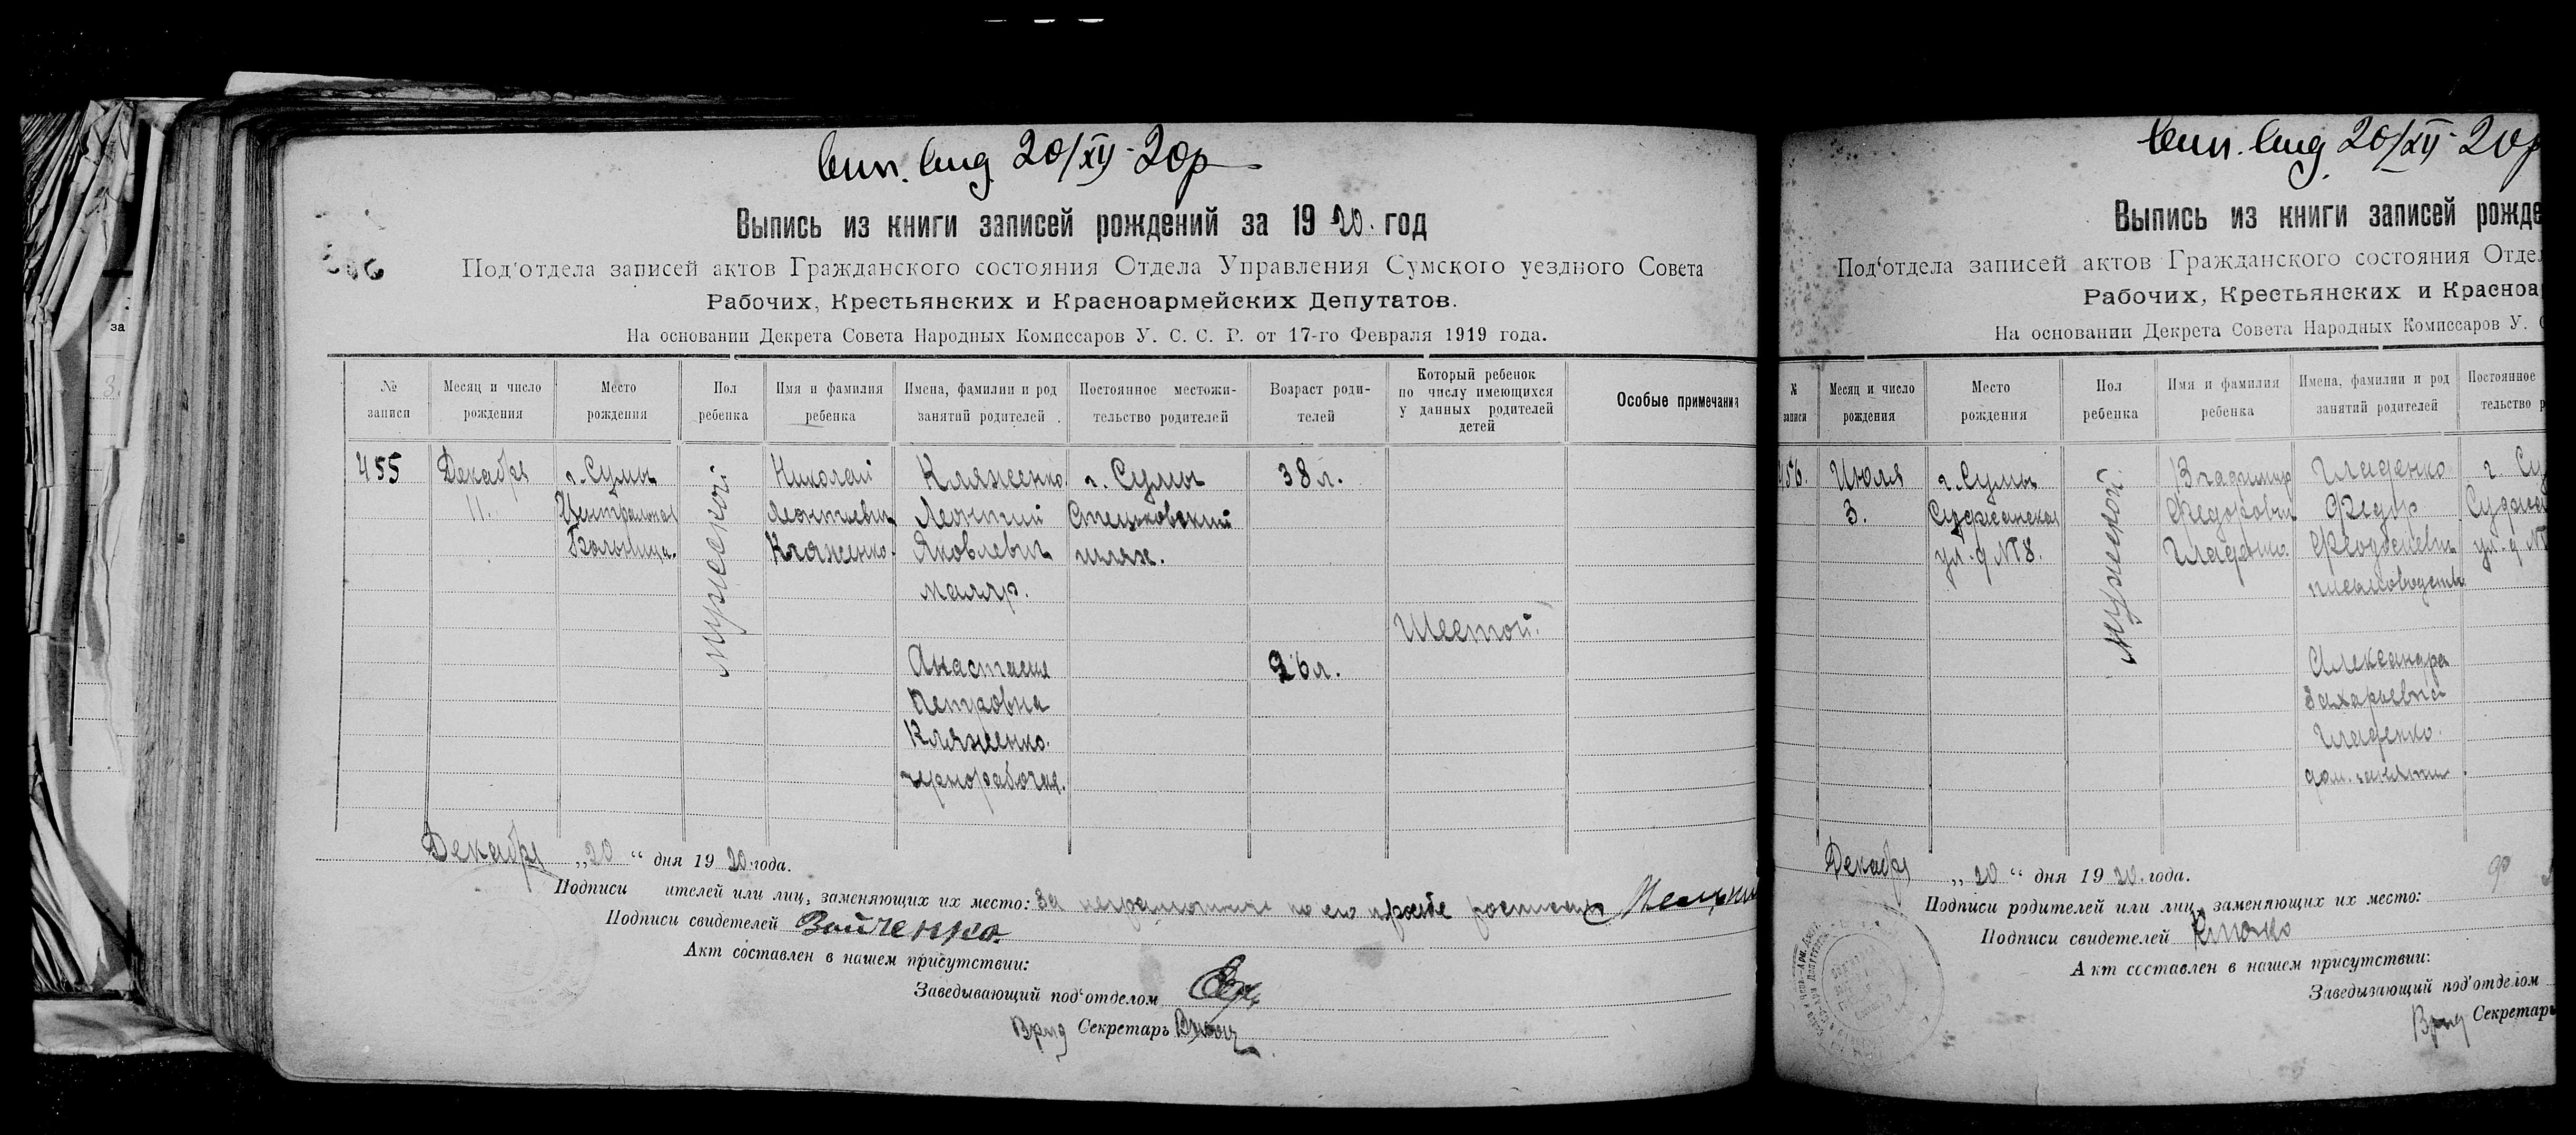 20/XII-20р
Выпись из книги записей рождений за 1920. год
Под'отдела записей актов Гражданского состояния Отдела Управления Сумского уездного Совета
Рабочих, Крестьянских и Красноармейских Депутатов.
На основании Декрета Совета Народных Комиссаров У. С. С. Р. от 17-го Февраля 1919 года.
№ записи
Месяц и число рождения
Место рождения
Пол ребенка
Имя и фамилия ребенка
Имена, фамилии и род занятий родителей
Постоянное местожительство родителей
Возраст родителей
Который ребенок по числу имеющихся у данных родителей детей
Особые примечания
455
Декабря
11.
г. Сумы
Центральная
Больница.
мужской
Николай
Леонтиевич
Кляженко.
Кляженко
Леонтий
Яковлевич
маляр.
г. Сумы
Стецьковский
шлях.
38 л.
Шестой.
Анастасия
Петровна
Кляженко.
чернорабочая.
26 л.
Декабря „20“ дня 1920 года.
Подписи ителей или лиц, заменяющих их место: За неграмотного по его просьбе
Подписи свидетелей Зайченко.
Акт составлен в нашем присутствии:
Заведывающий под'отделом
Врид Секретарь
20/XII-20р
Выпись из книги записей рожде
Под'отдела записей актов Гражданского состояния Отде
Рабочих, Крестьянских и Красноа
На основании Декрета Совета Народных Комиссаров У. С
№ записи
Месяц и число рождения
Место рождения
Пол ребенка
Имя и фамилия ребенка
Имена, фамилии и род занятий родителей
Постоянное
тельство р
456.
Июля
3.
г. Сумы
Суджанская
ул. д № 8.
мужской
Владимир
Федорович
Гладенко.
Гладенко
Федор
Феодосиевич
г. Су
Суджа
ул. д №
Александра
Захарьевна
Гладенко.
дом. занятия.
Декабря „20“ дня 1920. года.
Подписи родителей или лиц, заменяющих их место:
Подписи свидетелей Клочко
Акт составлен в нашем присутствии:
Заведывающий под'отделом
Врид Секретарь